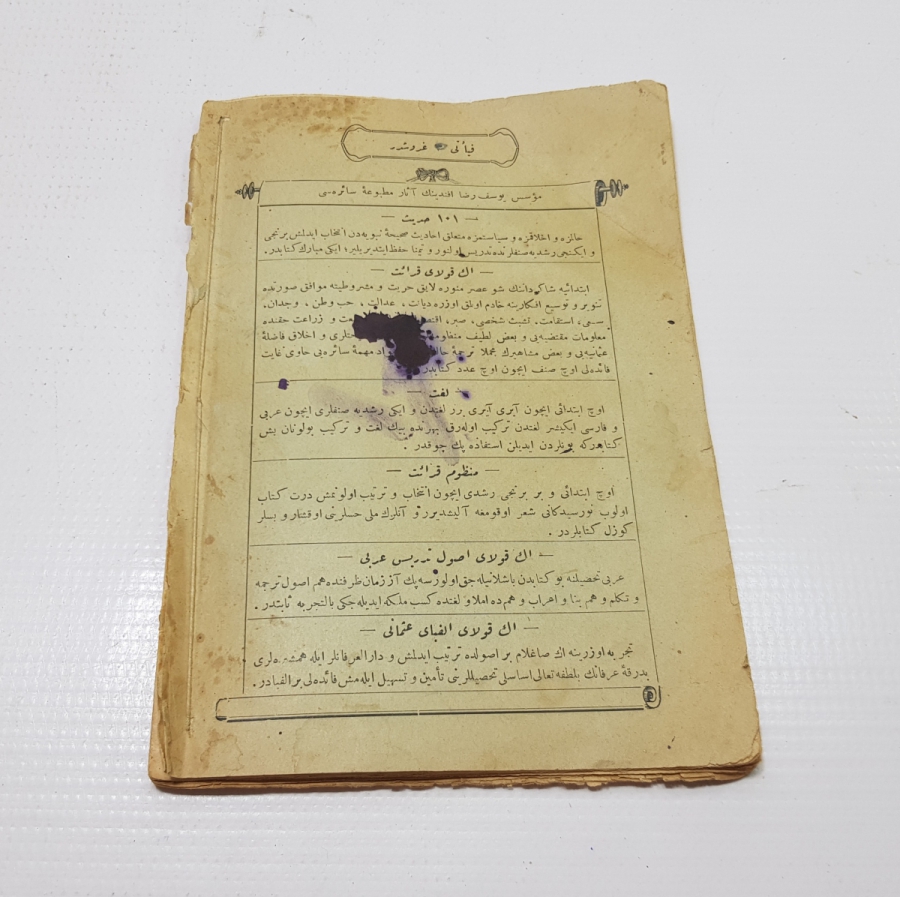 فیأتی غروشدر
مؤسس یوسف رضا افندینك آثار مطبوعهٔ سائره‌سی
— ۱۰۱ حدیث —
حالزه و اخلاقزه و سیاستمزه متعلق احادیث صحیحهٔ نبویه‌دن انتخاب ایدلمش برنجی
و ایکنجی رشدیه صنفلرنده تدریس اولنور و تیمنا حفظ ایتدیریلیر؛ ایکی مبارك کتابدر.
— اك قولای قرائت —
ابتدائیه شاکردانك شو عصر منوره لایق حریت و مشروطیته موافق صورتده
تنویر و توسیع افکارینه خادم اولمق اوزره دیانت ، عدالت ، حب وطن ، وجدان.
سعی، استقامت. تشبث شخصی، صبر، و زراعت حقنده
معلومات مقتضیه‌یی و بعض لطیف و اخلاق فاضلهٔ
عثمانیه‌یی و بعض مشاهیرك عملا ترجمهٔ مهمهٔ سائره‌یی حاوی غایت
فائده‌لی اوچ صنف ایچون اوچ عدد کتابدر
— لغت —
اوچ ابتدائی ایچون آیری آیری برر لغتدن و ایکی رشدیه صنفلری ایچون عربی
و فارسی ایکیشر لغتدن ترکیب اوله‌رق بهرنده بیك لغت و ترکیب بولونان بش
کتابدرکه بونلردن ایدیلن استفاده پك چوقدر .
— منظوم قرائت —
اوچ ابتدائی و بر برنجی رشدی ایچون انتخاب و ترتیب اولونمش درت کتاب
اولوب نورسیدکانی شعر اوقومغه آلیشدیرر و آنلرك ملی حسلرینی اوقشار و بسلر
کوزل کتابلردر .
— اك قولای اصول تدریس عربی —
عربی تحصیلنه بو کتابدن باشلانیله‌جق اولورسه پك آز زمان ظرفنده هم اصول ترجمه
و تکلم و هم بنا و اعراب و هم ده املا و لغتده کسب ملکه ایدیله‌جکی بالتجربه ثابتدر .
— اك قولای الفبای عثمانی —
تجربه اوزرینه اك صاغلام بر اصولده ترتیب ایدلمش و دار العرفانلر ایله همشیره‌لری
بدرقهٔ عرفانك بلطفه تعالی اساسلی تحصیللرینی تأمین و تسهیل ایله‌مش فائده‌لی بر الفبادر .